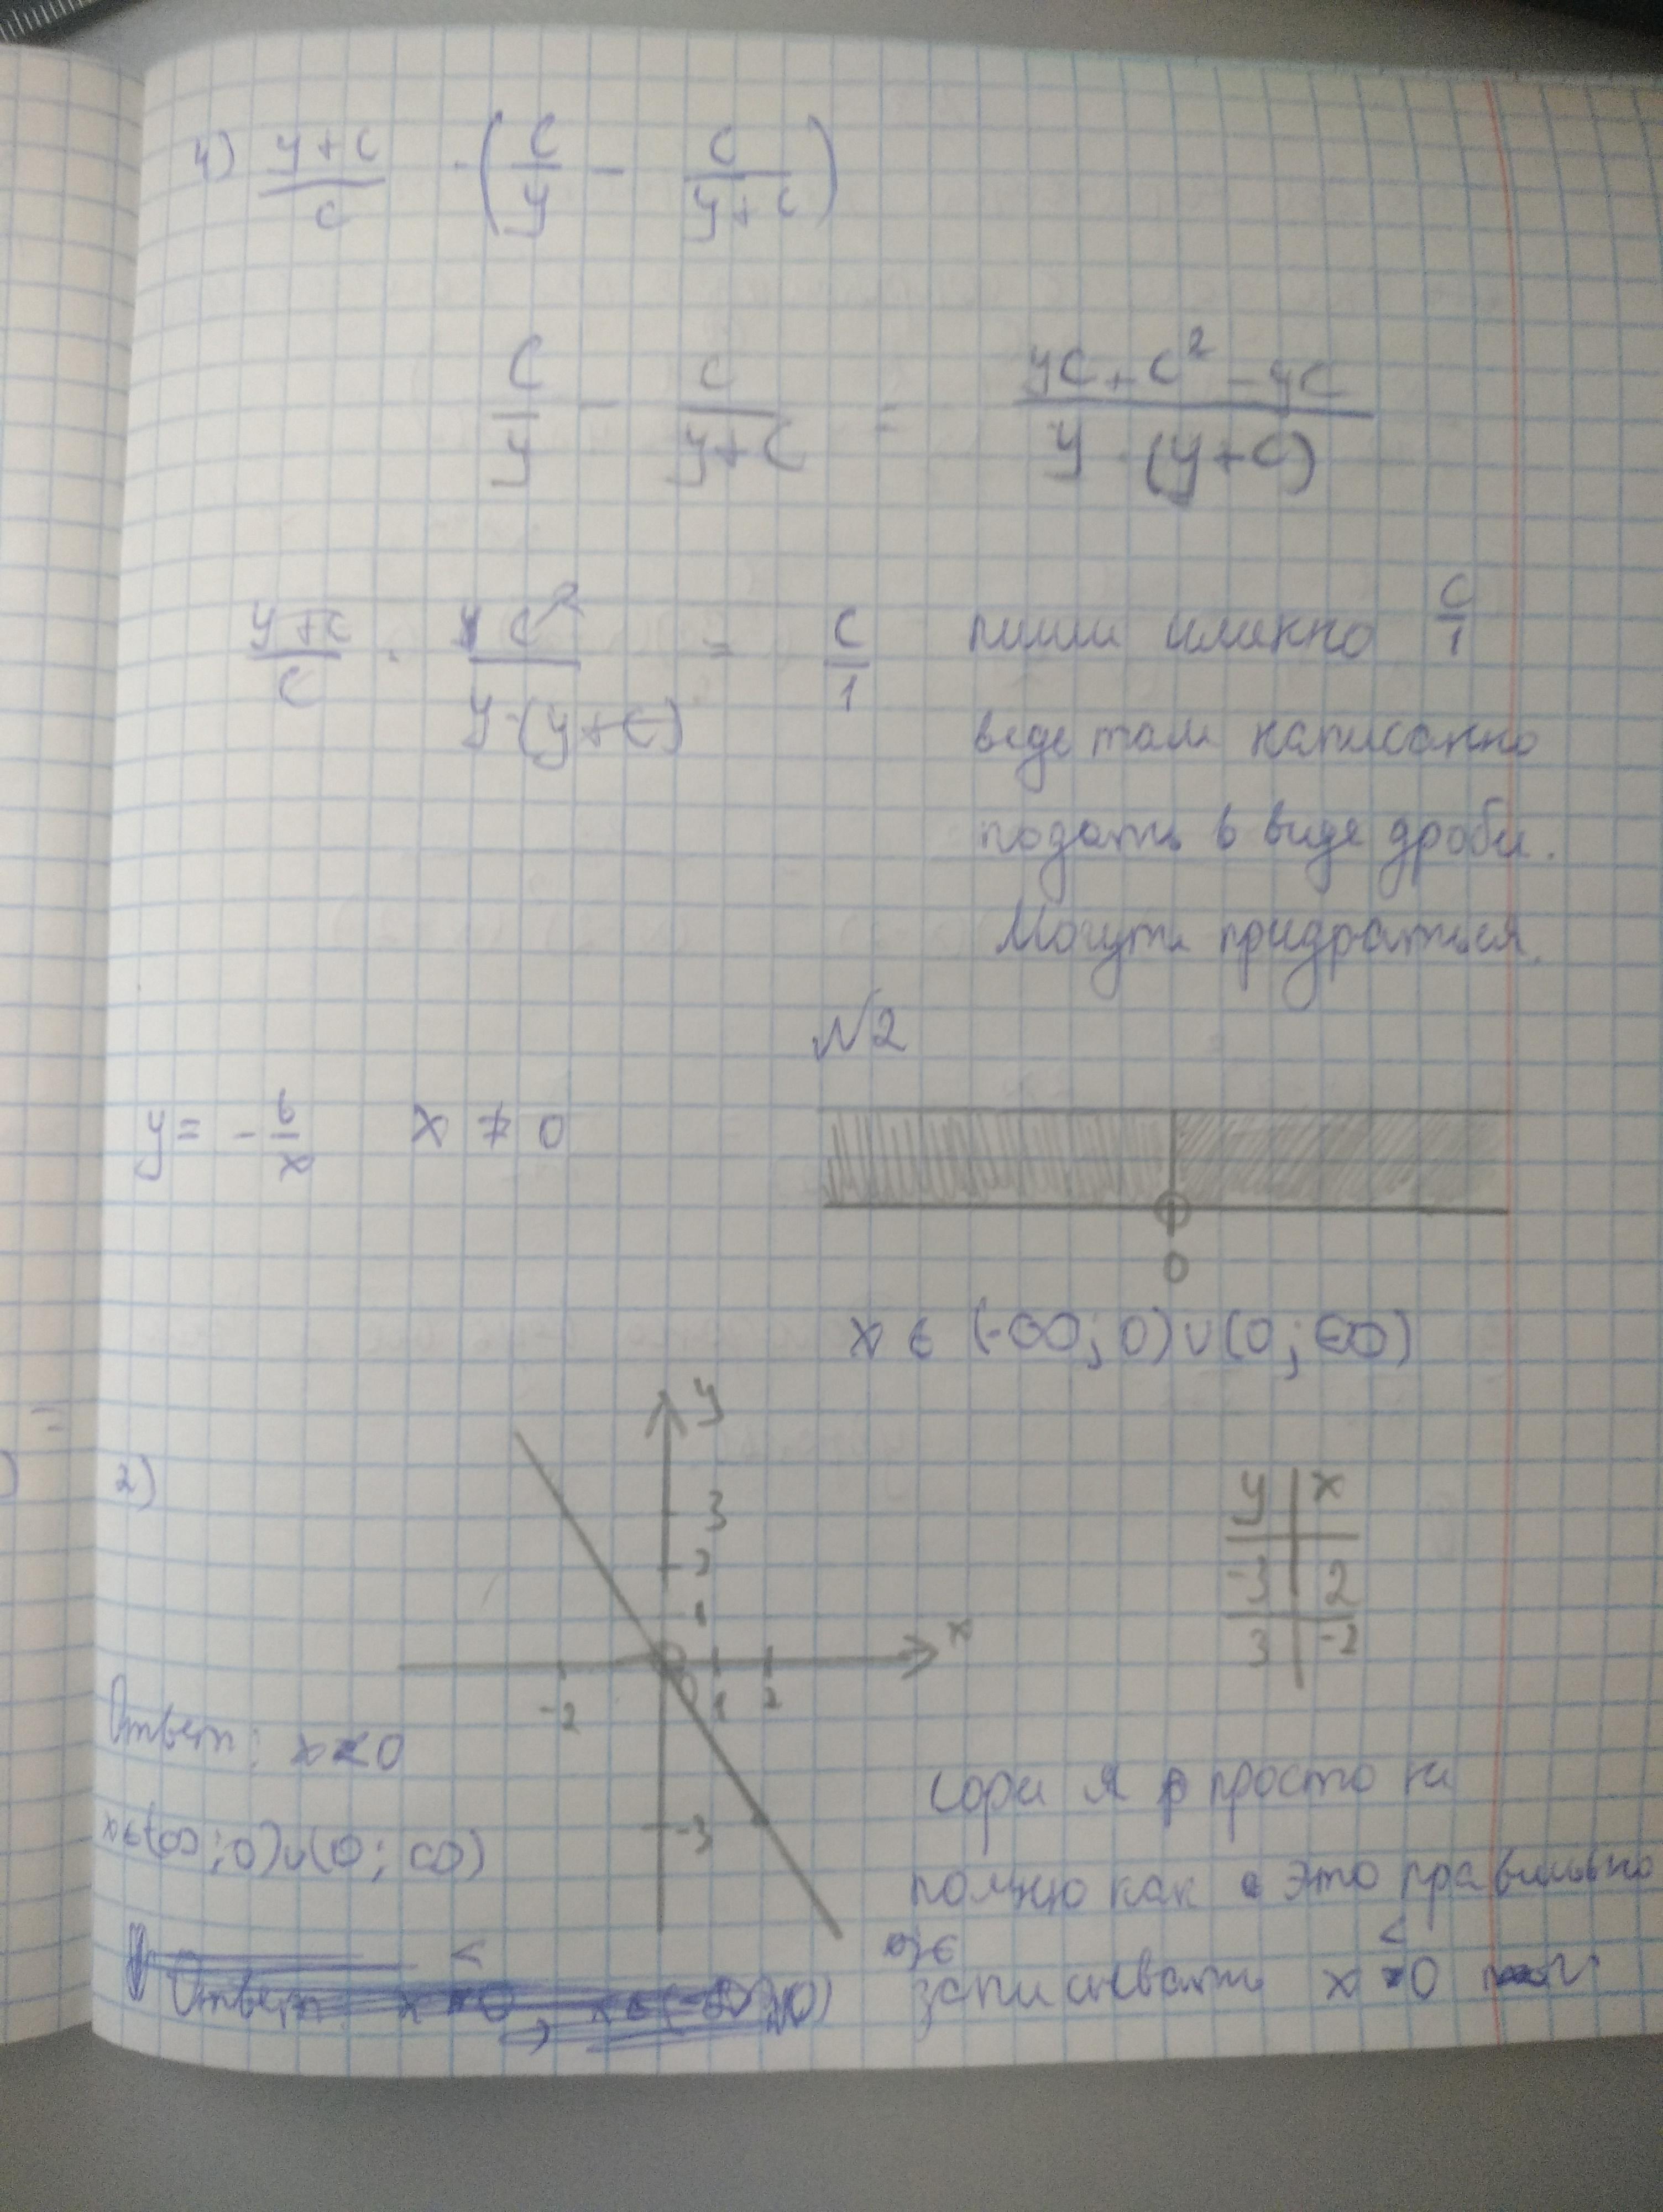 4) (y+c)/c · (c/y − c/(y+c))
c/y − c/(y+c) = (yc + c² − yc)/(y · (y+c))
(y+c)/c · c²/(y·(y+c)) = c/1 пиши именно c/1
веде там написанно
подать в виде дроби.
Могут придраться.
N2
y = − 6/x x ≠ 0
0
x ∈ (-∞; 0)∪(0; ∞)
2)
y
3
2
1
x
-2 1 2
-3
y x
-3 2
3 -2
Ответ: x<0
x∈(-∞; 0)∪(0; ∞)
Сори я просто ни
помню как это правильно
записывать x < 0
Ответ: x < 0, x∈(-∞; 0)